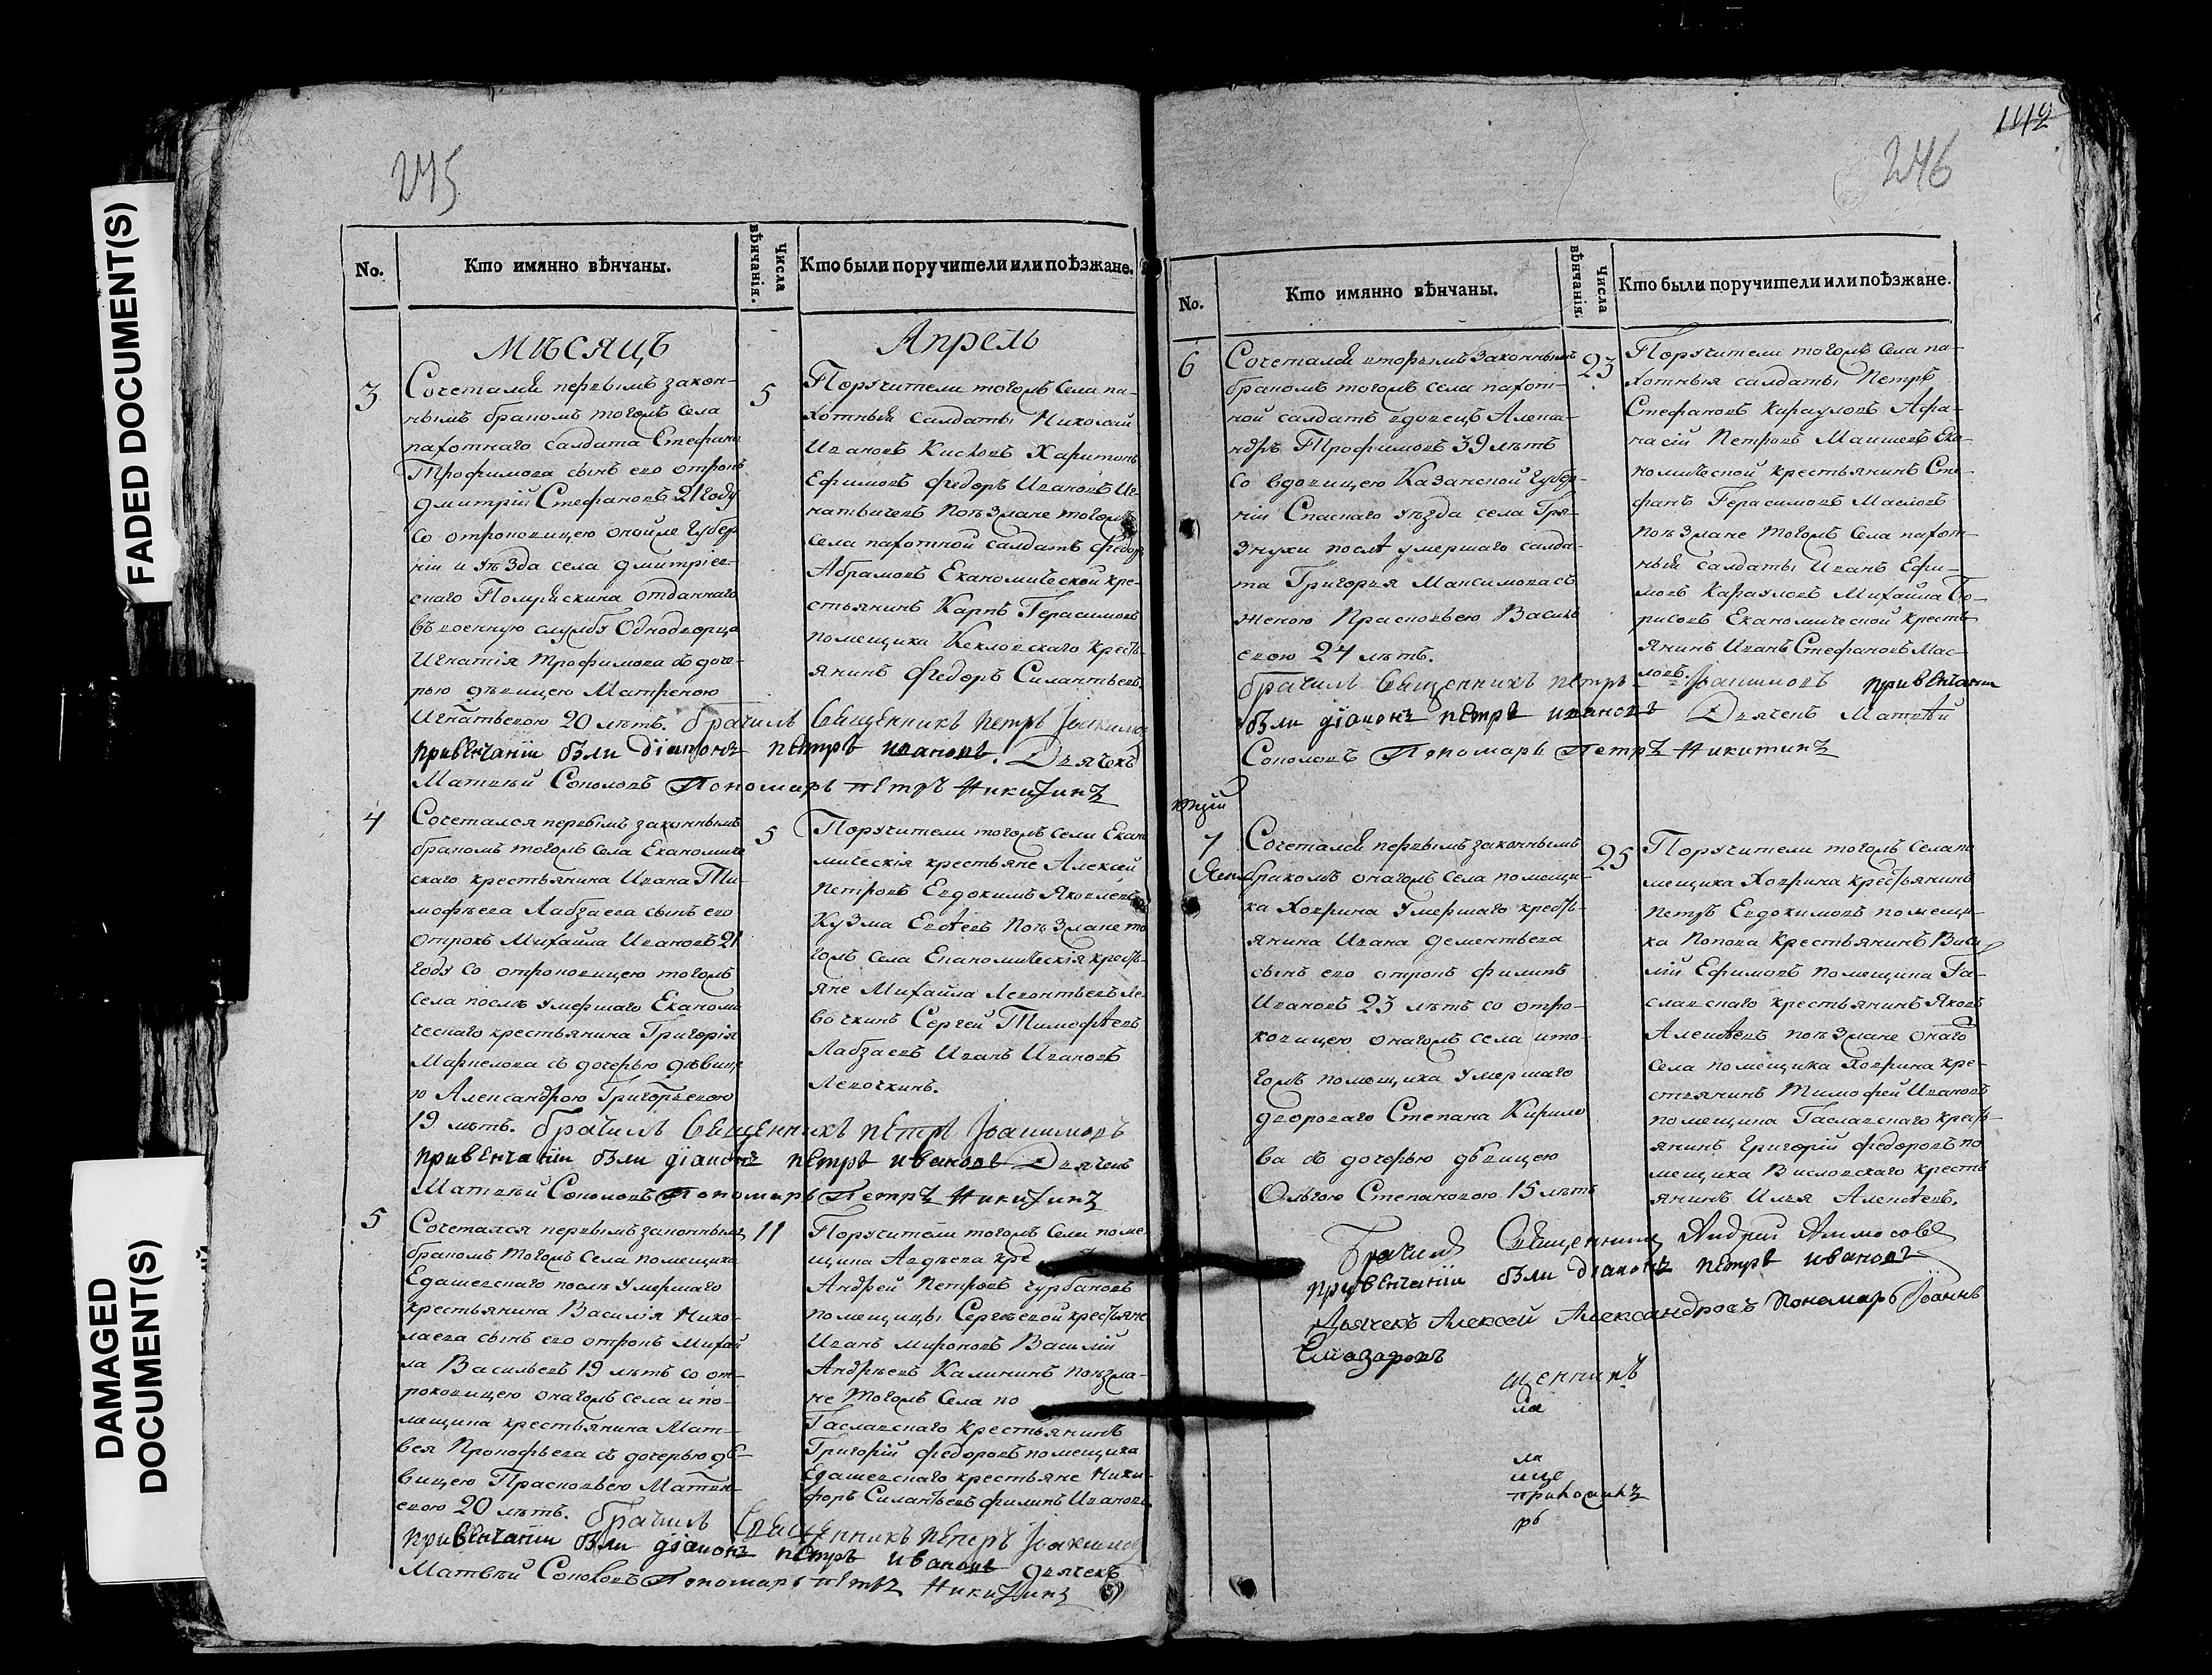 FADED DOCUMENT(S)
DAMAGED
DOCUMENT(S)
245
No.
Кто имянно вѣнчаны.
Числа
вѣнчанія.
Кто были поручители или поѣзжане.
Мѣсяцъ
Апрель
3
Сочетался первымъ закон-
нымъ бракомъ тогожъ села
пахотнаго салдата Стефана
Трофимова сынъ его отрокъ
Дмитрій Стефановъ 21 году
со отроковицею онойже губер
ніи и уѣзда села Дмитріев-
скаго отданнаго
въ военную службу Однодворца
Игнатія Трофимова съ доче-
рью дѣвицею Матреною
Игнатьевою 20 лѣтъ. брачилъ Священникъ петръ Іоакимов
привенчаніи были діаконъ петръ ивановъ. Дьячекъ
Матвѣй Соколовъ Пономарь петръ Никитинъ
5
Поручители тогожъ села па-
хотный салдаты Николай
Ивановъ Харитонъ
Ефимовъ Федоръ Ивановъ Иг-
натьичевъ поѣзжане тогожъ
села пахотной салдатъ Федор
Абрамовъ Економической кре-
стьянинъ Карпъ Герасимовъ
помещика Кекловскаго кресть
янинъ Федоръ Силантьевъ.
4
Сочетался первымъ законнымъ
бракомъ тогожъ села Економиче
скаго крестьянина Ивана Ти-
мофѣева Лабзаева сынъ его
отрокъ Михайла Ивановъ 21
году со отроковицею тогожъ
села послѣ умершаго Економи
ческаго крестьянина Григорія
Маркелова съ дочерью дѣвице
ю Александрою Григорьевою
19 лѣтъ. брачилъ Священникъ петръ Іоакимовъ
привенчаніи были діаконъ петръ ивановъ Дьячекъ
Матвѣй Соколовъ Пономарь Петръ Никитинъ
5
Поручители тогожъ села Екано
мическія крестьяне Алексѣй
Петровъ Евдокимъ Яковлевъ
Кузма Евсѣевъ Поѣзжане то
гожъ села Економическія кресть-
яне Михайла Левонтьевъ Ле-
вочкинъ Сергей Тимофѣевъ
Лабзаевъ Иванъ Ивановъ
Левочкинъ.
5
Сочетался первымъ законнымъ
бракомъ тогожъ села помещика
Едашевскаго послѣ умершаго
крестьянина Василія Нико-
лаева сынъ его отрокъ Михай
ла Васильевъ 19 лѣтъ со от-
роковицею онагожъ села и по-
мещика крестьянина Мат-
вея Прокофьева съ дочерью дѣ-
вицею Прасковьею Матвѣ-
евою 20 лѣтъ. брачилъ Священникъ петръ Іоакимов
привенчаніи были діаконъ петръ ивановъ Дьячекъ
Матвѣй Соколовъ Пономарь петръ Никитинъ
11
Поручители тогожъ села поме
щика Авдѣева кре
Андрей Петровъ Чурбановъ
помещицы Сергѣевой крестьяне
Иванъ Мироновъ Василій
Андрѣевъ Калининъ поѣзжа-
не тогожъ села по
Гаславскаго крестьянинъ
Григорій Федоровъ помещика
Едашевскаго крестьяне Ники-
форъ Силантьевъ Филипъ Ивановъ.
246
No.
Кто имянно вѣнчаны.
Числа
вѣнчанія.
Кто были поручители или поѣзжане.
6
Сочетался вторымъ законнымъ
бракомъ тогожъ села пахот-
ной салдатъ вдовецъ Алекса-
ндръ Трофимовъ 39 лѣтъ
со вдовицею Казанской губер-
ніи Спаскаго уѣзда села Гря-
знухи послѣ умершаго салда-
та Григорья Максимова съ
женою Прасковьею Василь
евою 24 лѣтъ.
брачилъ Священникъ петръ Іоакимовъ привенчаніи
были діаконъ петръ ивановъ Дьячекъ Матвѣй
Соколовъ Пономарь Петръ Никитинъ
23
Поручители тогожъ села па-
хотныя салдаты Петръ
Стефановъ Карауловъ Афа-
насій Петровъ Еко-
номической крестьянинъ Сте-
фанъ Герасимовъ Масловъ
поѣзжане тогожъ села пахот-
ный салдаты Иванъ Ефи-
мовъ Карауловъ Михайла Бо-
рисовъ Економической кресть
янинъ Иванъ Стефановъ Мас-
ловъ.
7
Сочетался первымъ законнымъ
бракомъ онагожъ села помещи-
ка Ховрина умершаго кресть-
янина Ивана Дементьева
сынъ его отрокъ Филипъ
Ивановъ 23 лѣтъ со отро-
ковицею онагожъ села и то-
гожъ помещика умершаго
двороваго Степана Кирило
ва съ дочерью дѣвицею
Ольгою Степановою 15 лѣтъ
25
Поручители тогожъ села по
мещика Ховрина крестьянинъ
Петръ Евдокимовъ помещи-
ка Попова крестьянинъ Васи
лій Ефимовъ помещика Га-
славскаго крестьянинъ Яковъ
Алексѣевъ поѣзжане онаго
села помещика Ховрина кре-
стьянинъ Тимофей Ивановъ
помещика Гаславскаго кресть-
янинъ Григорій Федоровъ по
мещика Висловскаго кресть
янинъ Илья Алексѣевъ.
Брачилъ Священникъ Андрей
привенчаніи были діаконъ петръ ивановъ
Дьячекъ Алексей Александровъ Пономарь Іоаннъ
Елиазаровъ
щенникъ